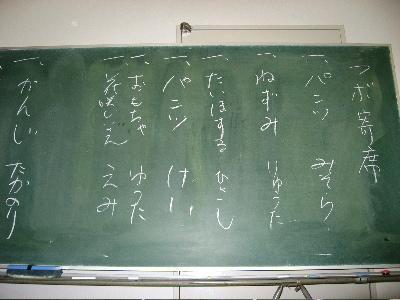 ツボ寄席
一、パニツ みそら
一、ねずみ りゅうた
一、たいほする ひとし
一、パニツ けい
一、おもちゃ ゆうた
花咲じいさん えみ
一、かんじ たかのり